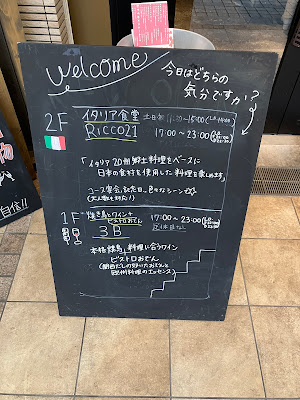 welcome
今日はどちらの
気分ですか?
2F イタリア食堂 土日祝 11:30~15:00 (L.o 14:00)
Ricco21 17:00~23:00
「イタリア20州郷土料理をベースに
日本の食材も使用した料理を楽しめます」
コース宴会、記念日、色々なシーンで
(大人数も対応!)
1F 焼き鳥とワイン+
ビストロおでん 17:00~23:00
3B 定休日なし
本格焼鳥と料理に合うワイン
ビストロおでん
(関西だしの効いたおでんと
欧州料理のエッセンス)
自信!!